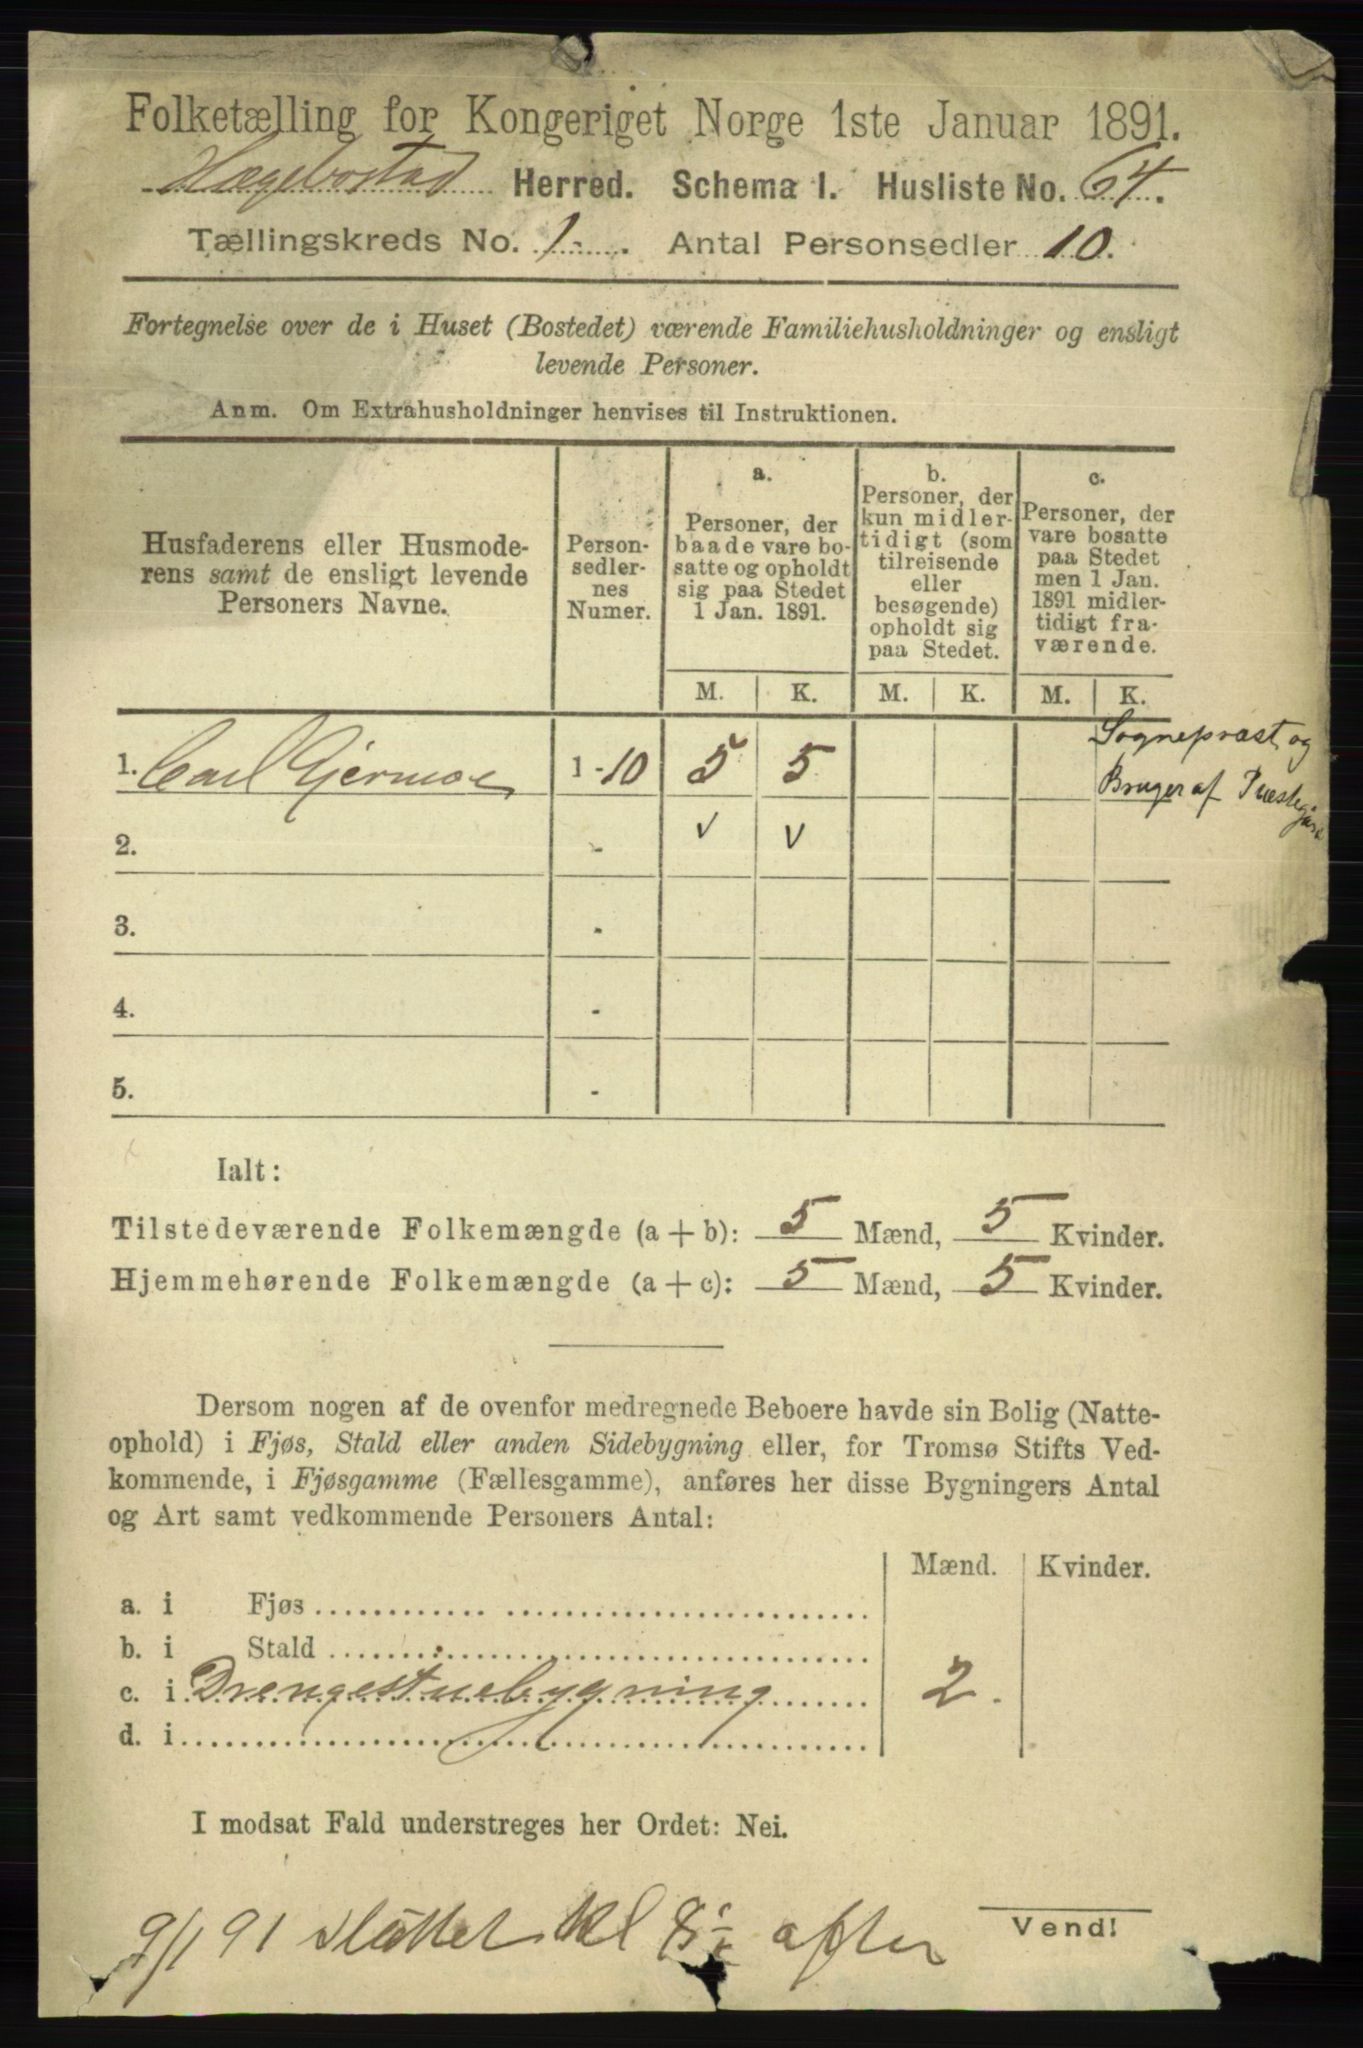 Folketælling for Kongeriget Norge 1ste Januar 1891.
Hægebostad Herred. Schema I. Husliste No. 64.
Tællingskreds No. 1. Antal Personsedler 10.
Fortegnelse over de i Huset (Bostedet) værende Familiehusholdninger og ensligt
levende Personer.
Anm. Om Extrahusholdninger henvises til Instruktionen.
Husfaderens eller Husmode-
rens samt de ensligt levende
Personers Navne.
Person-
sedler-
nes
Numer.
a.
Personer, der
baade vare bo-
satte og opholdt
sig paa Stedet
1 Jan. 1891.
b.
Personer, der
kun midler-
tidigt (som
tilreisende
eller
besøgende)
opholdt sig
paa Stedet.
c.
Personer, der
vare bosatte
paa Stedet
men 1 Jan.
1891 midler-
tidigt fra-
værende.
M. K. M. K. M. K.
Sognepræst og
1. Carl Gjermoe 1-10 5 5
Bruger af Præstegård
2. - v v
3. -
4. -
5. -
Ialt:
Tilstedeværende Folkemængde (a + b): 5 Mænd, 5 Kvinder.
Hjemmehørende Folkemængde (a + c): 5 Mænd, 5 Kvinder.
Dersom nogen af de ovenfor medregnede Beboere havde sin Bolig (Natte-
ophold) i Fjøs, Stald eller anden Sidebygning eller, for Tromsø Stifts Ved-
kommende, i Fjøsgamme (Fællesgamme), anføres her disse Bygningers Antal
og Art samt vedkommende Personers Antal:
Mænd. Kvinder.
a. i Fjøs
b. i Stald
c. i Drengestuebygning 2.
d. i
I modsat Fald understreges her Ordet: Nei.
9/1 91 sluttet Kl 8 after
Vend!